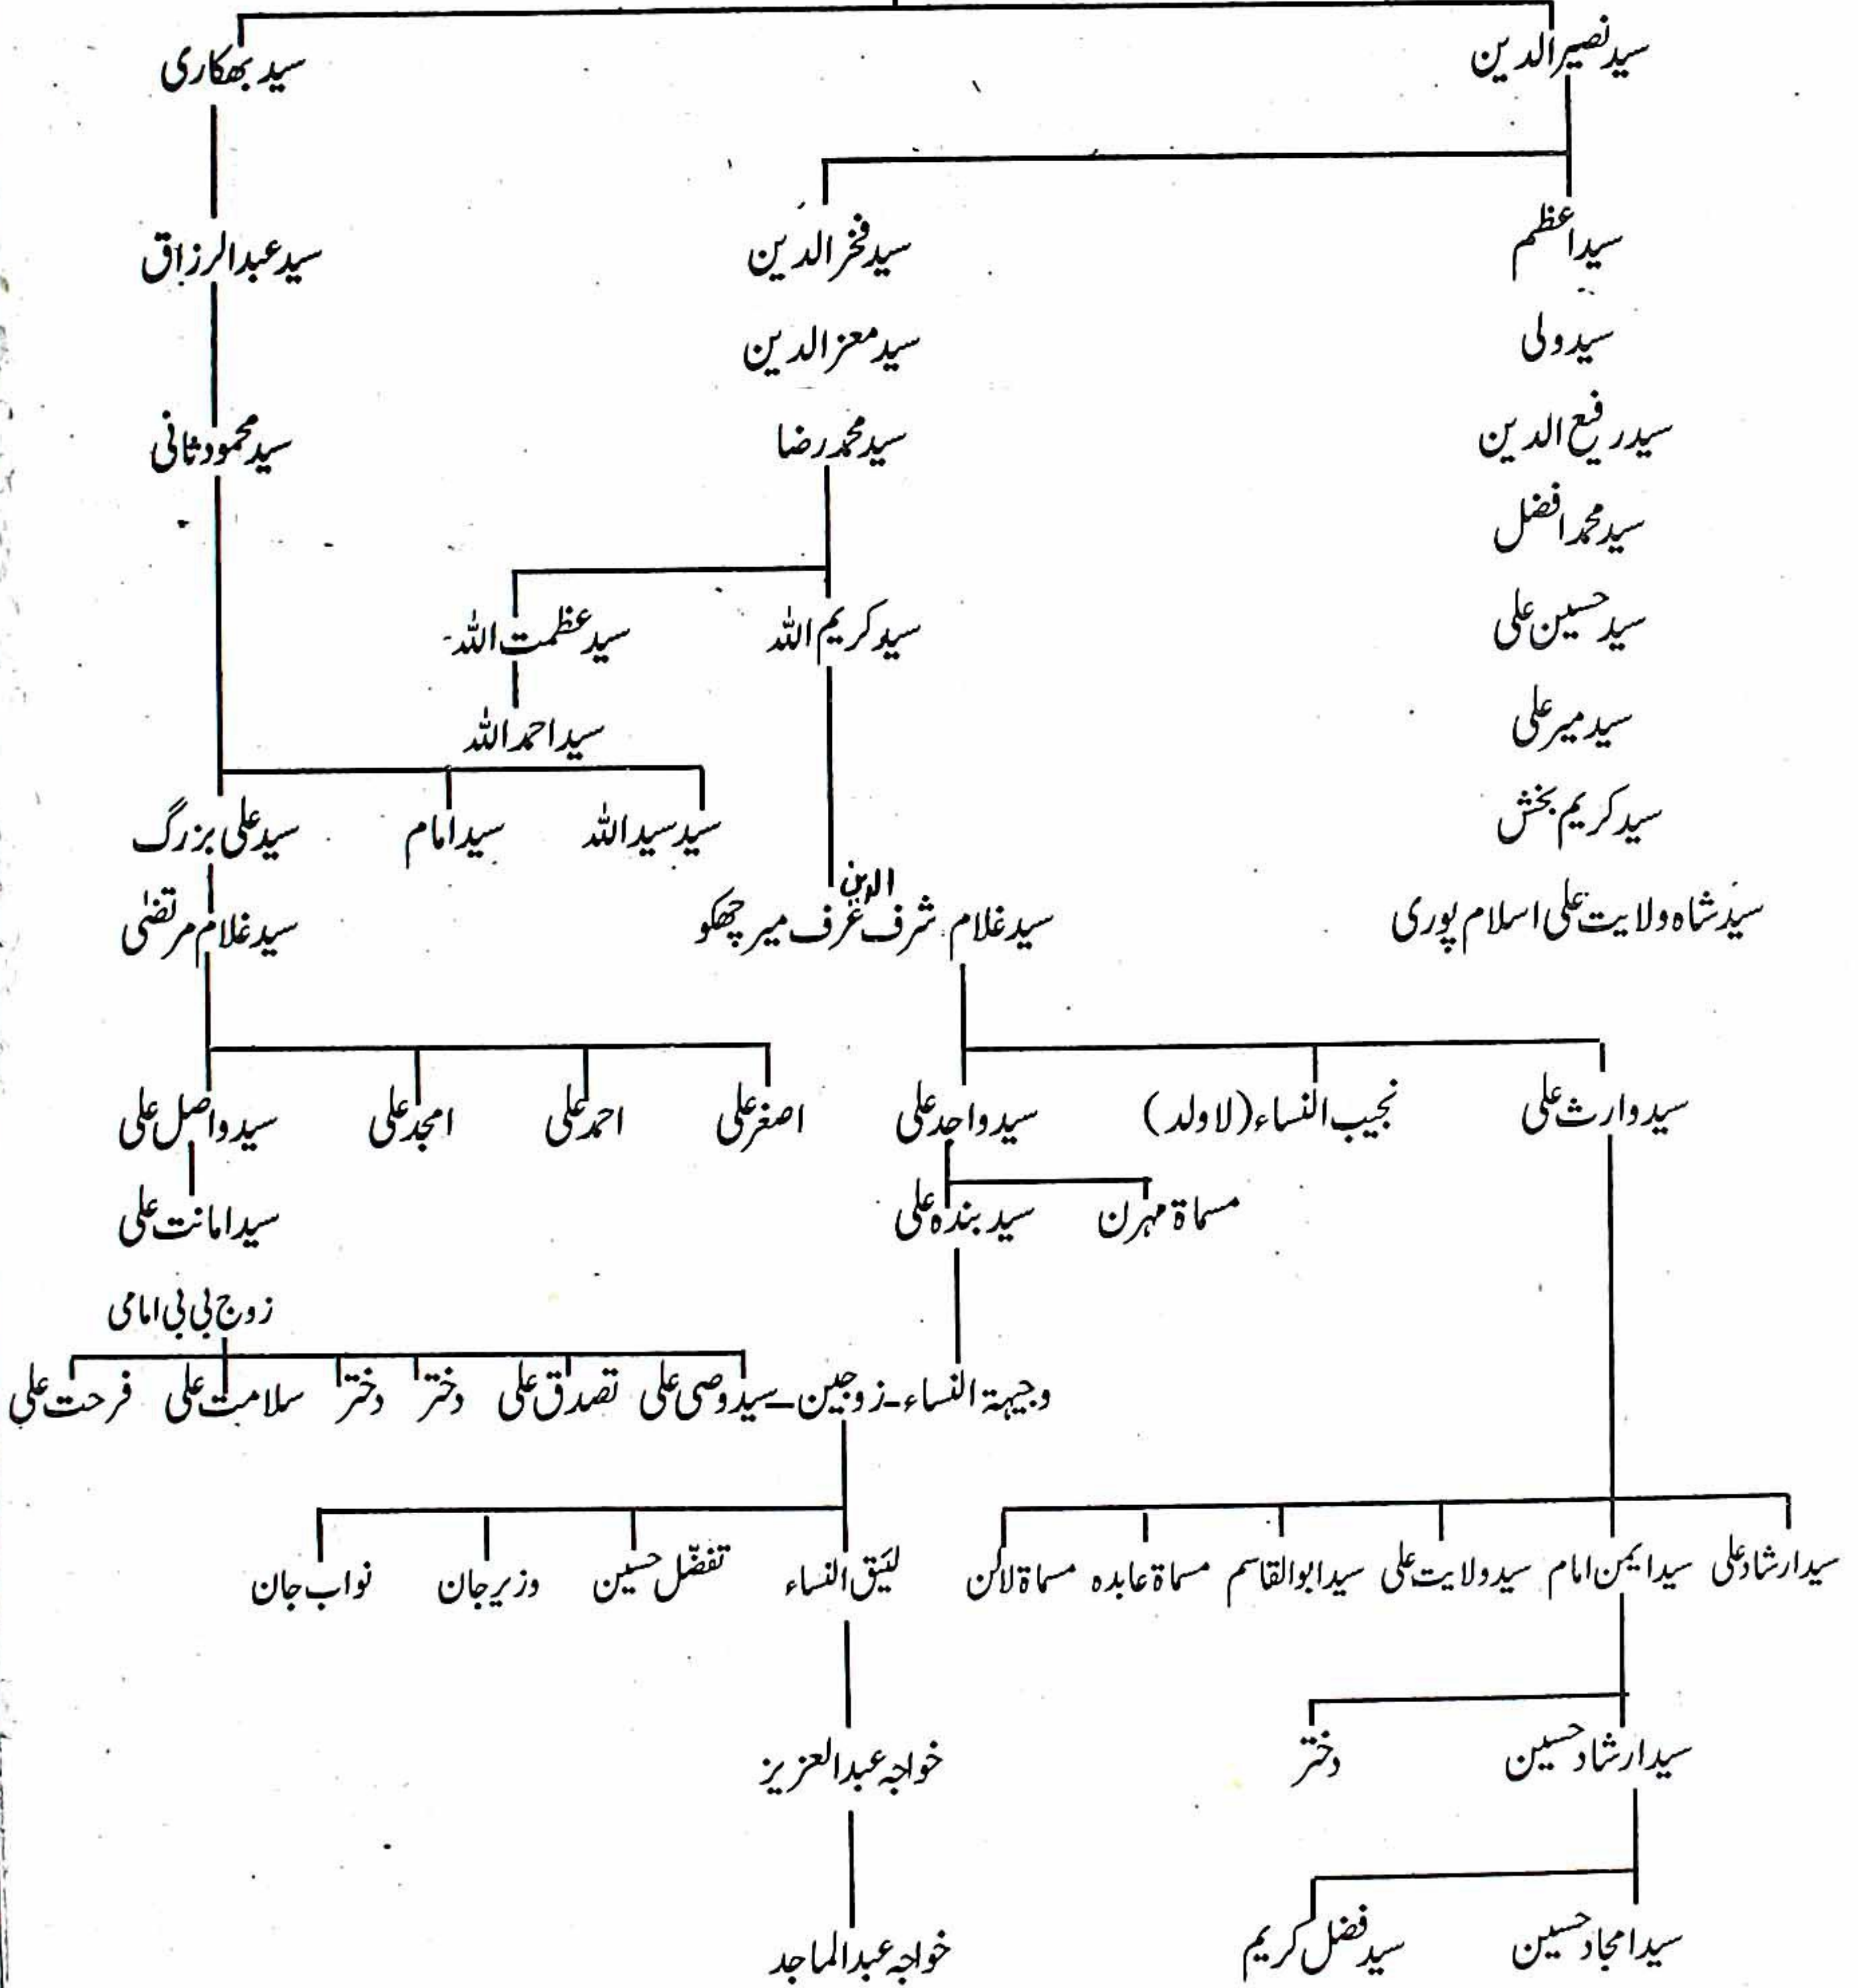 سید نصیر الدین
سید بھکاری
سید اعظم
سید فخر الدین
سید عبدالرزاق
سید ولی
سید معز الدین
سید رفیع الدین
سید محمد رضا
سید محمود ثانی
سید محمد افضل
سید حسین علی
سید کریم اللہ
سید عظمت اللہ
سید میر علی
سید احمد اللہ
سید کریم بخش
سید سید اللہ
سید امام
سید علی بزرگ
سید شاہ ولایت علی اسلام پوری
الدین
سید غلام شرف عرف میر چھکو
سید غلام مرتضٰی
سید وارث علی
نجیب النساء (لا ولد)
سید واجد علی
اصغر علی
احمد علی
امجد علی
سید واصل علی
مسماۃ مہرن
سید بندہ علی
سید امانت علی
زوج بی بی امامی
وجیہۃ النساء - زوجین - سید وصی علی
تصدق علی
دختر
دختر
سلامت علی
فرحت علی
سید ارشاد علی
سید ایمن امام
سید ولایت علی
سید ابوالقاسم
مسماۃ عابدہ
مسماۃ لاکن
لئیق النساء
تفضّل حسین
وزیر جان
نواب جان
سید ارشاد حسین
دختر
خواجہ عبدالعزیز
سید امجاد حسین
سید فضل کریم
خواجہ عبدالماجد